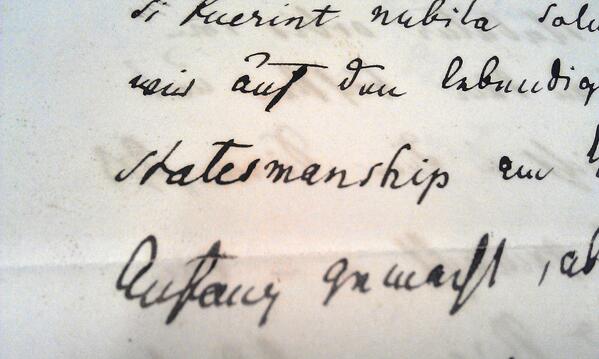 si fuerint nubila solu
wir auf den lebendig
statesmanship am
Anfang gemacht, ab